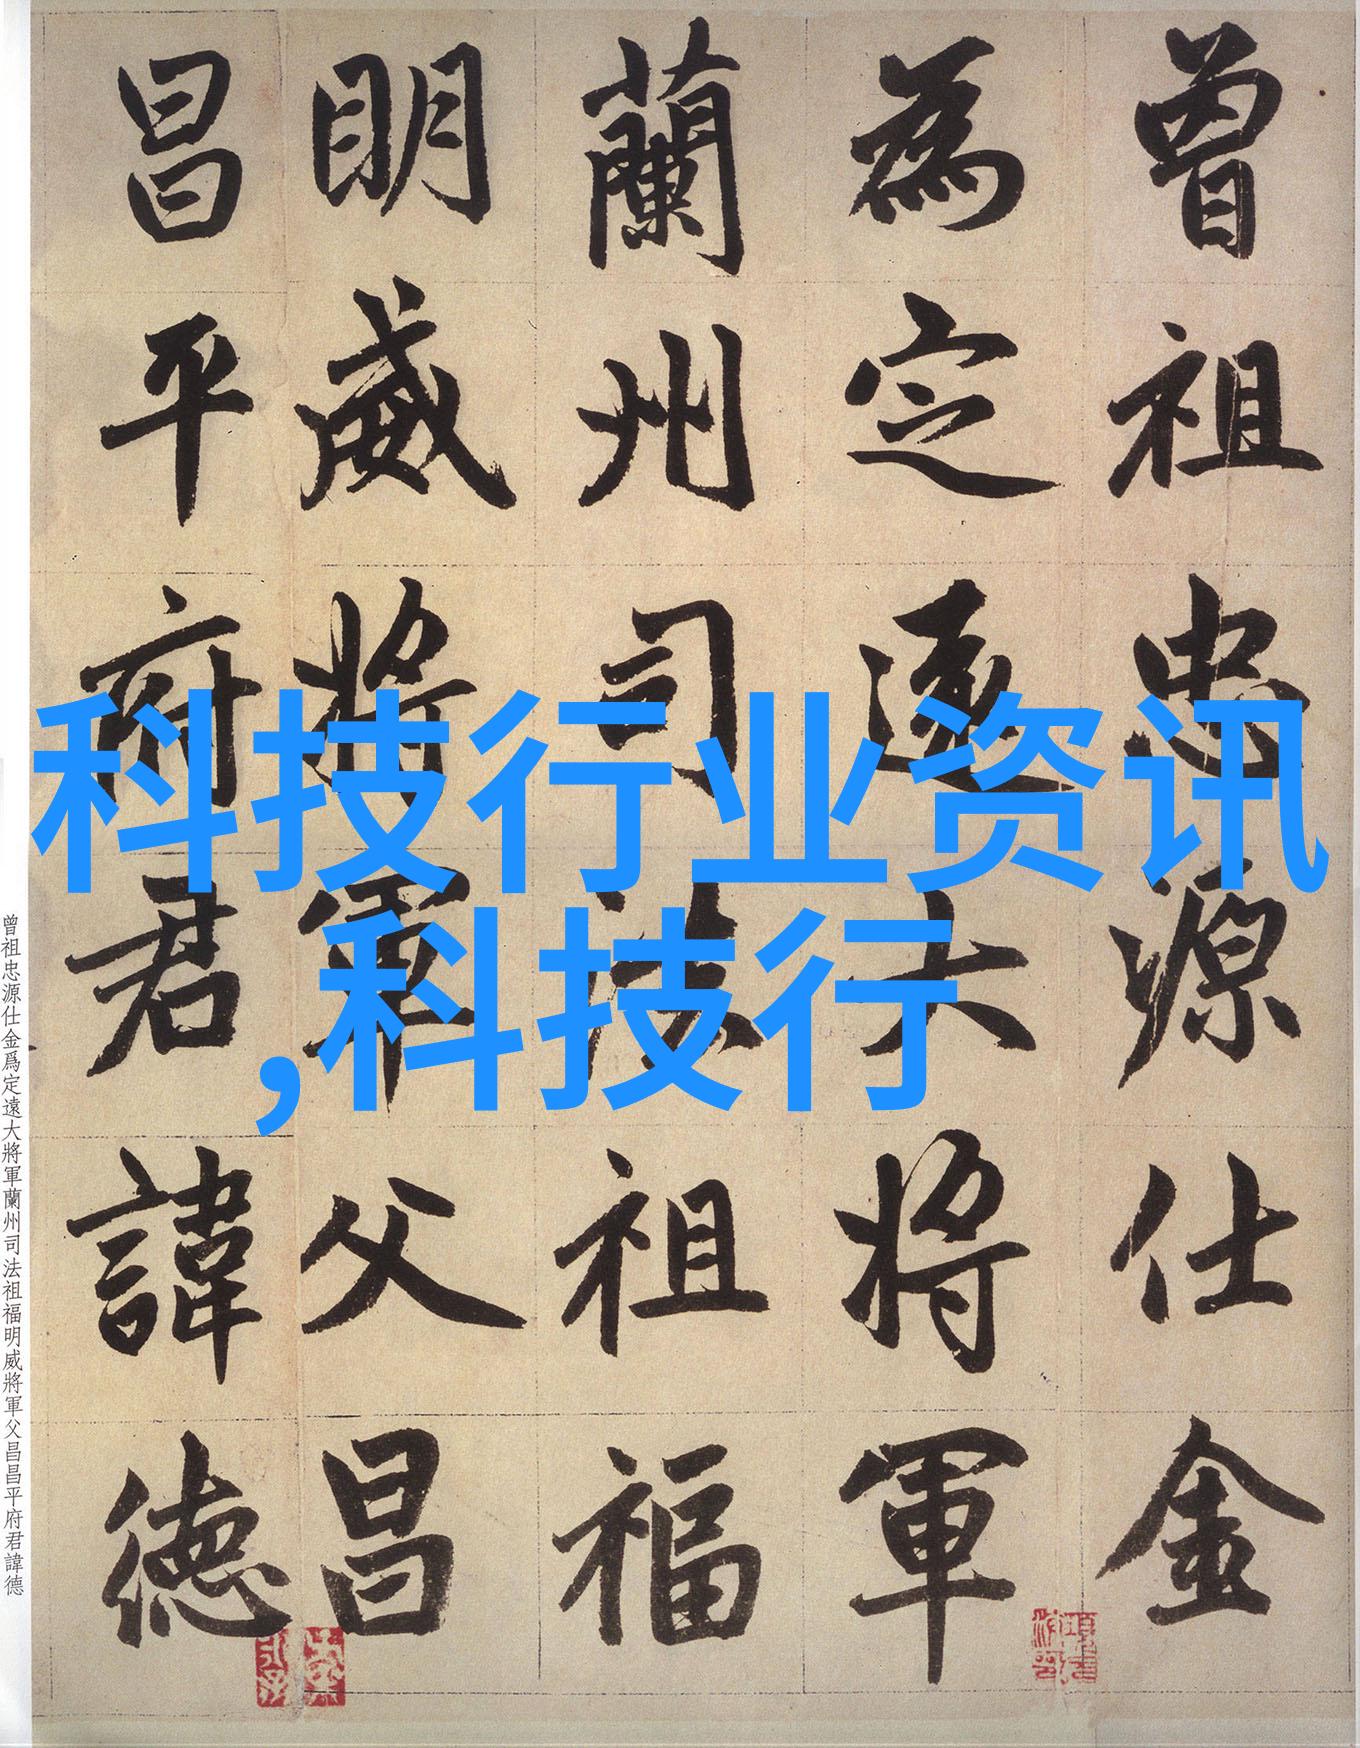 曾祖忠源仕金
為定遠大將軍
蘭州司法祖福
明威將軍父昌
昌平府君諱德
科技行业资讯
,科技行
曾祖忠源仕金爲定遠大將軍蘭州司法祖福明威將軍父昌昌平府君諱德